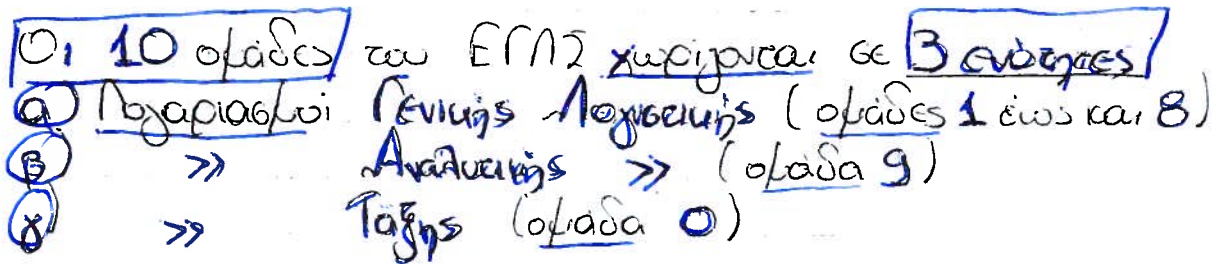 Οι 10 ομάδες του ΕΓΛΣ χωρίζονται σε 3 ενότητες
α) Λογαριασμοί Γενικής Λογιστικής (ομάδες 1 έως και 8)
β) >> Αναλυτικής >> (ομάδα 9)
γ) >> Τάξης (ομάδα 0)